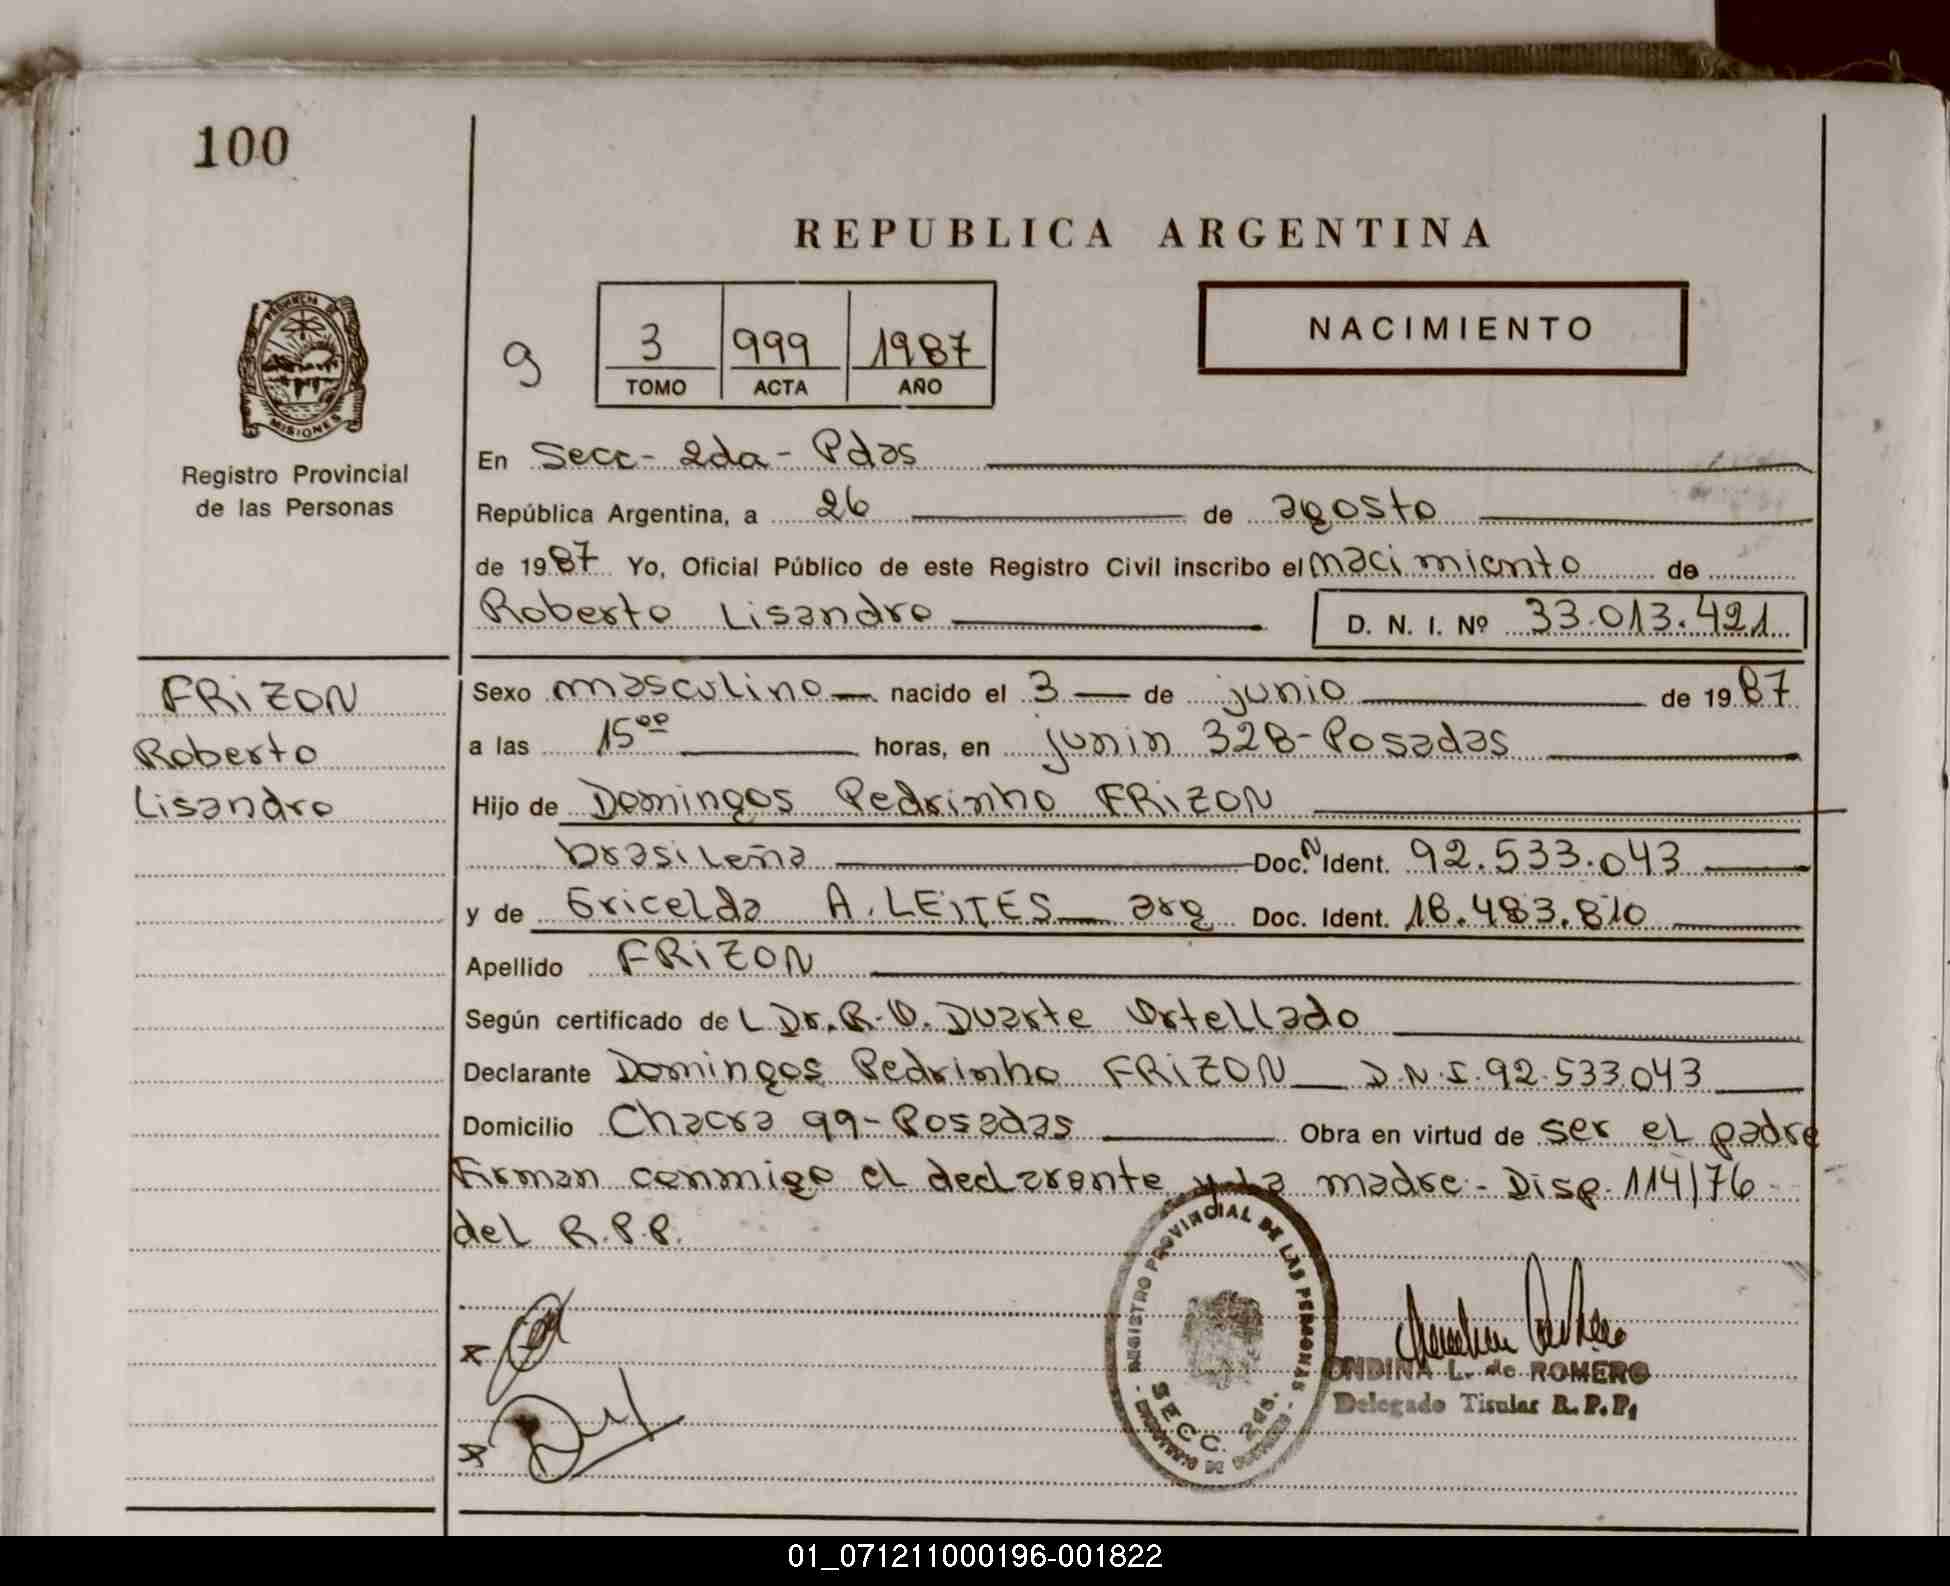 100
REPUBLICA ARGENTINA
NACIMIENTO
9
3 999 1987
TOMO ACTA AÑO
PROVINCIA DE
MISIONES
Registro Provincial
de las Personas
En Secc- 2da- Pdas
República Argentina, a 26 de agosto
de 1987 Yo, Oficial Público de este Registro Civil inscribo el nacimiento de
Roberto Lisandro D. N. I. Nº 33.013.421
FRIZON
Roberto
Lisandro
Sexo masculino nacido el 3 de junio de 1987
a las 15⁰⁰ horas, en junin 328-Posadas
Hijo de Domingos Pedrinho FRIZON
brasileña Doc. N Ident. 92.533.043
y de Gricelda A. LEITES arg Doc. Ident. 18.483.810
Apellido FRIZON
Según certificado de L Dr. R. O. Duarte Ortellado
Declarante Domingos Pedrinho FRIZON D.N.I. 92.533.043
Domicilio Chacra 99-Posadas Obra en virtud de ser el padre
Firman conmigo el declarante y la madre- Disp. 114/76
del R.P.P.
REGISTRO PROVINCIAL DE LAS PERSONAS
SECC. 2da.
ONDINA L. de ROMERO
Delegado Titular R.P.P.
01_071211000196-001822